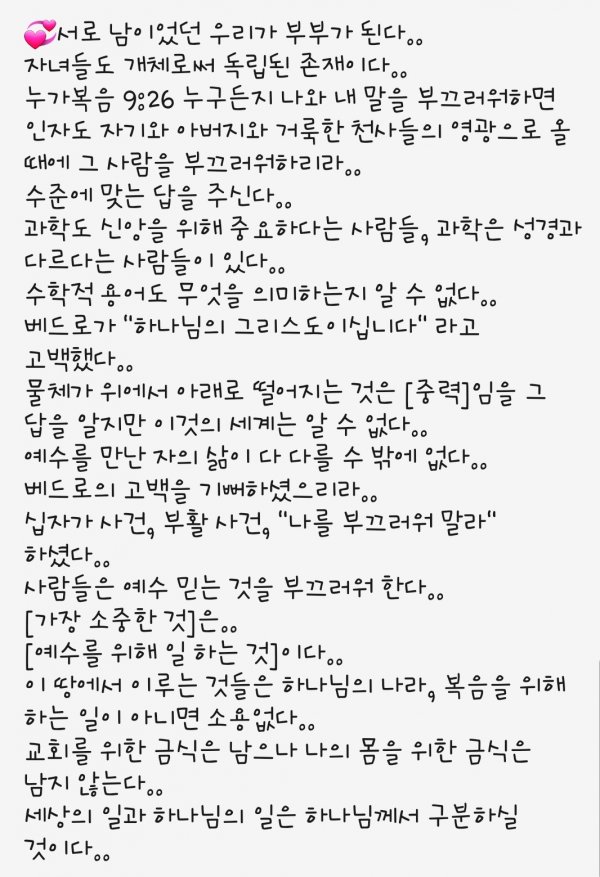 💞서로 남이었던 우리가 부부가 된다..
자녀들도 개체로써 독립된 존재이다..
누가복음 9:26 누구든지 나와 내 말을 부끄러워하면
인자도 자기와 아버지와 거룩한 천사들의 영광으로 올
때에 그 사람을 부끄러워하리라..
수준에 맞는 답을 주신다..
과학도 신앙을 위해 중요하다는 사람들, 과학은 성경과
다르다는 사람들이 있다..
수학적 용어도 무엇을 의미하는지 알 수 없다..
베드로가 "하나님의 그리스도이십니다" 라고
고백했다..
물체가 위에서 아래로 떨어지는 것은 [중력]임을 그
답을 알지만 이것의 세계는 알 수 없다..
예수를 만난 자의 삶이 다 다를 수 밖에 없다..
베드로의 고백을 기뻐하셨으리라..
십자가 사건, 부활 사건, "나를 부끄러워 말라"
하셨다..
사람들은 예수 믿는 것을 부끄러워 한다..
[가장 소중한 것]은..
[예수를 위해 일 하는 것]이다..
이 땅에서 이루는 것들은 하나님의 나라, 복음을 위해
하는 일이 아니면 소용없다..
교회를 위한 금식은 남으나 나의 몸을 위한 금식은
남지 않는다..
세상의 일과 하나님의 일은 하나님께서 구분하실
것이다..